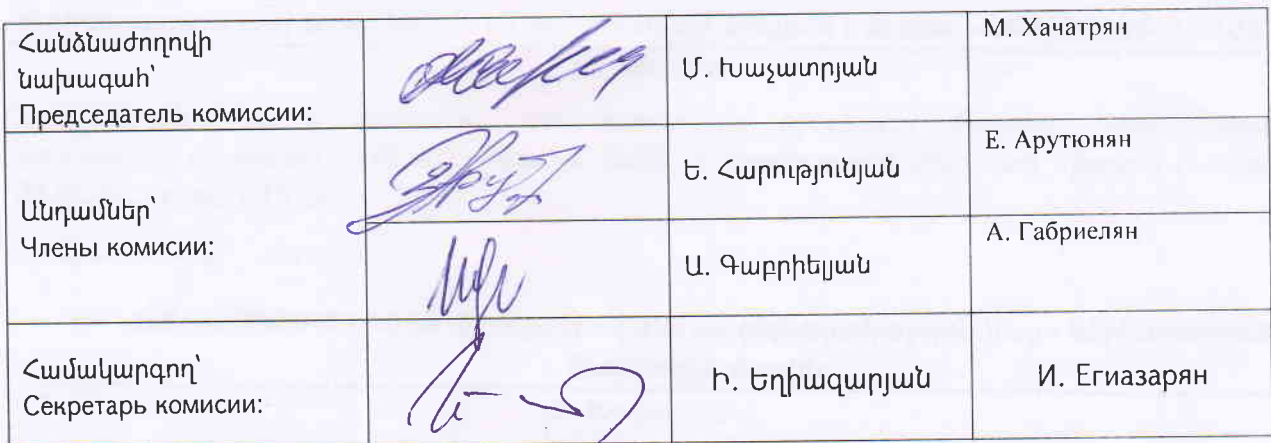 Հանձնաժողովի
նախագահ՝
Председатель комиссии:
Մ. Խաչատրյան
М. Хачатрян
Անդամներ՝
Члены комисии:
Ե. Հարությունյան
Е. Арутюнян
Ա. Գաբրիելյան
А. Габриелян
Համակարգող՝
Секретарь комисии:
Ի. Եղիազարյան
И. Егиазарян